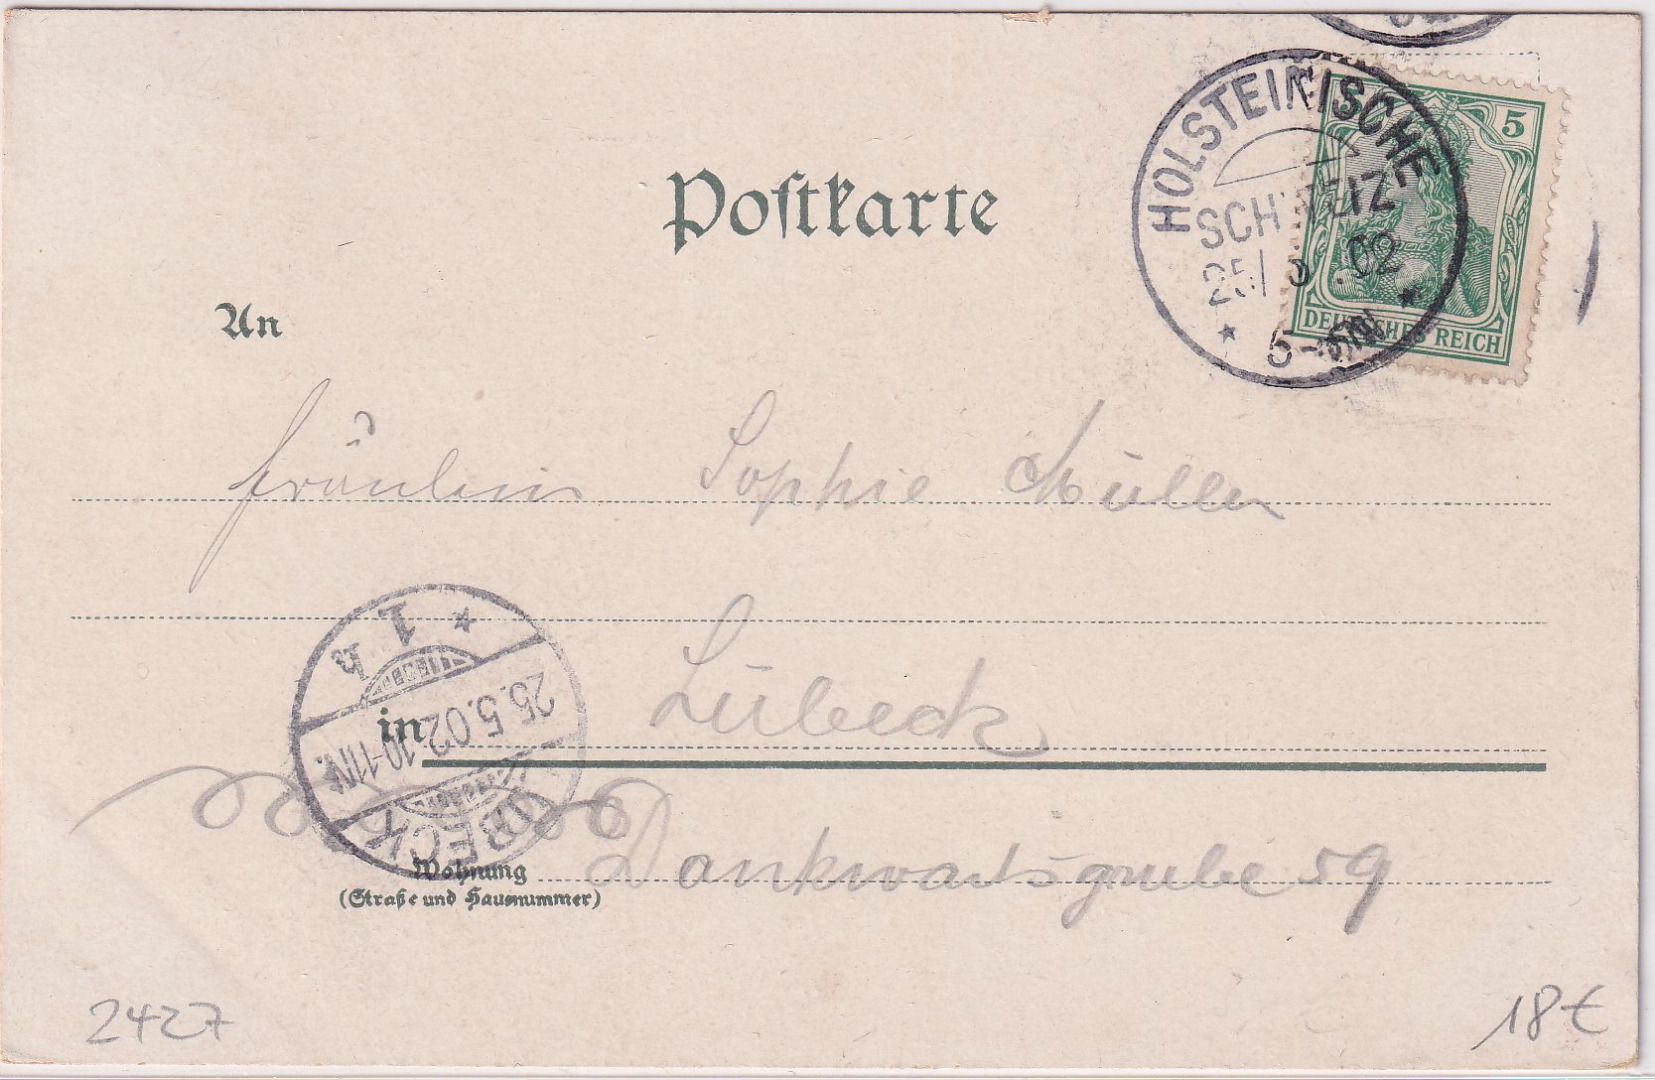 Postkarte
HOLSTEINISCHE
SCHWEIZ
25/5.02
5-6N
5
DEUTSCHES REICH
An
Fräulein Sophie Müller
in Lübeck
LÜBECK
25.5.02.10-11N.
* 1.b
Wohnung Dankwartsgrube 59
(Straße und Hausnummer)
2427
18€